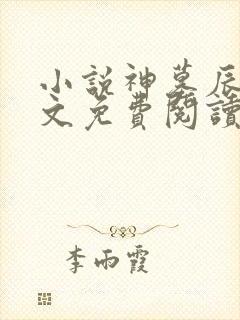 小說神墓辰
文免費閱讀
李雨霞